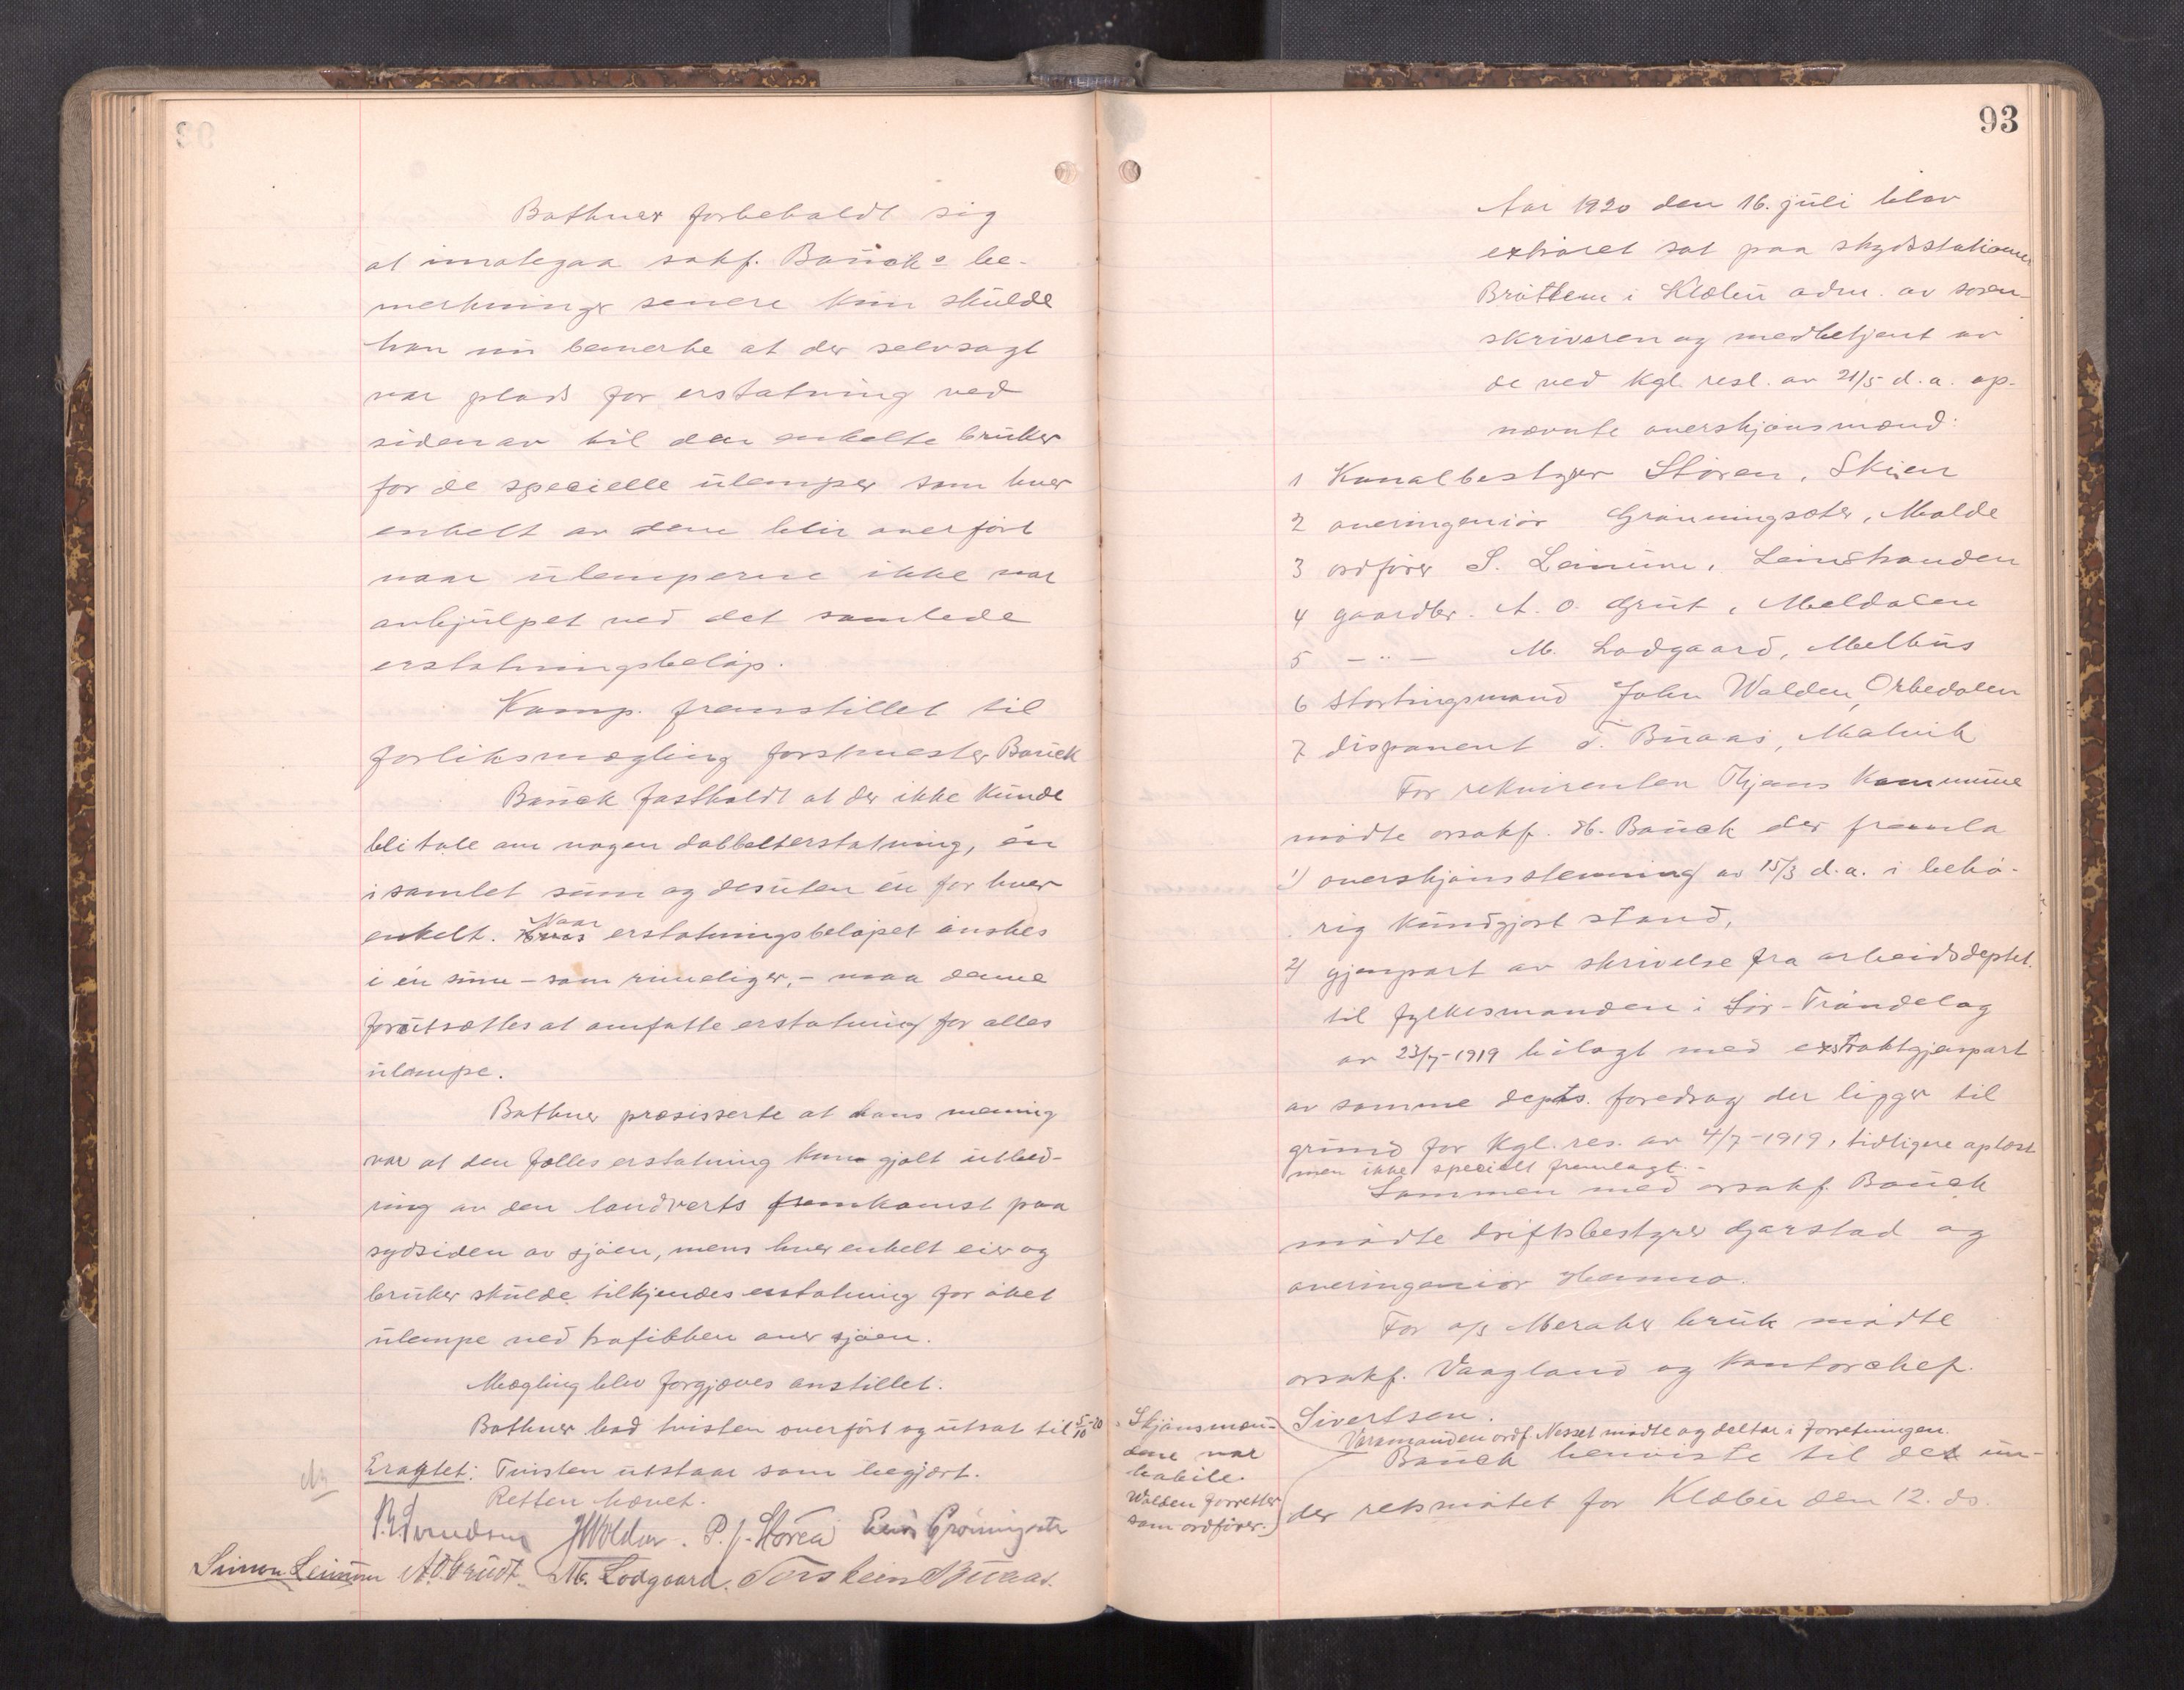 Bathner forbeholdt sig
at imøtegaa sakf. Bauck's be-
merkninger senere kun skulde
han nu bemerke at der selvsagt
var plads for erstatning ved
siden av til den enkelte bruker
for de specielle ulemper som hver
enkelt av dem blir overført
naar ulemperne ikke var
avhjulpet ved det samlede
erstatningsbeløp.
Komp. fremstillet til
forliksmægling forstmester Bauck
Bauck fastholdt at der ikke kunde
bli tale om nogen dobbelterstatning, én
i samlet sum og desuten én for hver
enkelt. Naar erstatningsbeløpet ønskes
i én sum – som rimeliger, – maa denne
forutsættes at omfatte erstatning for alles
ulempe.
Bathner præsisserte at hans mening
var at den fælles erstatning kun gjalt utbed-
ring av den landverts fremkomst paa
sydsiden av sjøen, mens hver enkelt eier og
bruker skulde tilkjendes erstatning for øket
ulempe ved trafikken over sjøen.
Mægling blev forgjæves anstillet.
Bathner bad tvisten overført og utsat til 5/10-20
Eragtet: Tvisten utstaar som begjært.
Retten hævet.
JWolden. P. J. Støren Grønningsæter
Simon Leinum A.O. Grudt. M. Lodgaard. Torstein Buaas.
93
Aar 1920 den 16. juli blev
extraret sat paa skydsstationen
Brøttem i Klæbu adm. av soren-
skriveren og medbetjent av
de ved kgl. resl. av 21/5 d.a. op-
nævnte overskjønsmænd:
1 Kanalbestyrer Støren, Skien
2 overingeniør Grønningsæter, Molde
3 ordfører S. Leinum, Leinstranden
4 gaardbr. A. O. Grut, Meldalen
5 – " – M. Lodgaard, Melhus
6 Stortingsmand John Wolden, Orkedalen
7 disponent T. Buaas, Malvik
For rekvirenten Thjems kommune
møtte orsakf. H. Bauck der fremla
1) overskjønstevning av 15/3 d.a. i behø-
rig kundgjort stand,
2) gjenpart av skrivelse fra arbeidsdeptet.
til fylkesmanden i Sør-Trøndelag
av 23/7-1919 bilagt med extraktgjenpart
av samme depts. foredrag der ligger til
grund for kgl. res. av 4/7-1919, tidligere oplæst
men ikke specielt fremlagt. –
Sammen med orsakf. Bauck
møtte driftsbestyrer Gjarstad og
overingeniør
For a/s Meraker bruk møtte
orsakf. Vaagland og kontorchef.
Sivertsen.
Varamanden ordf. Nesset møtte og deltar i forretningen.
Skjønsmæn-
dene var
habile.
Wolden forretter
som ordfører.
Bauck henviste til det un-
der retsmøtet for Klæbu den 12. ds.